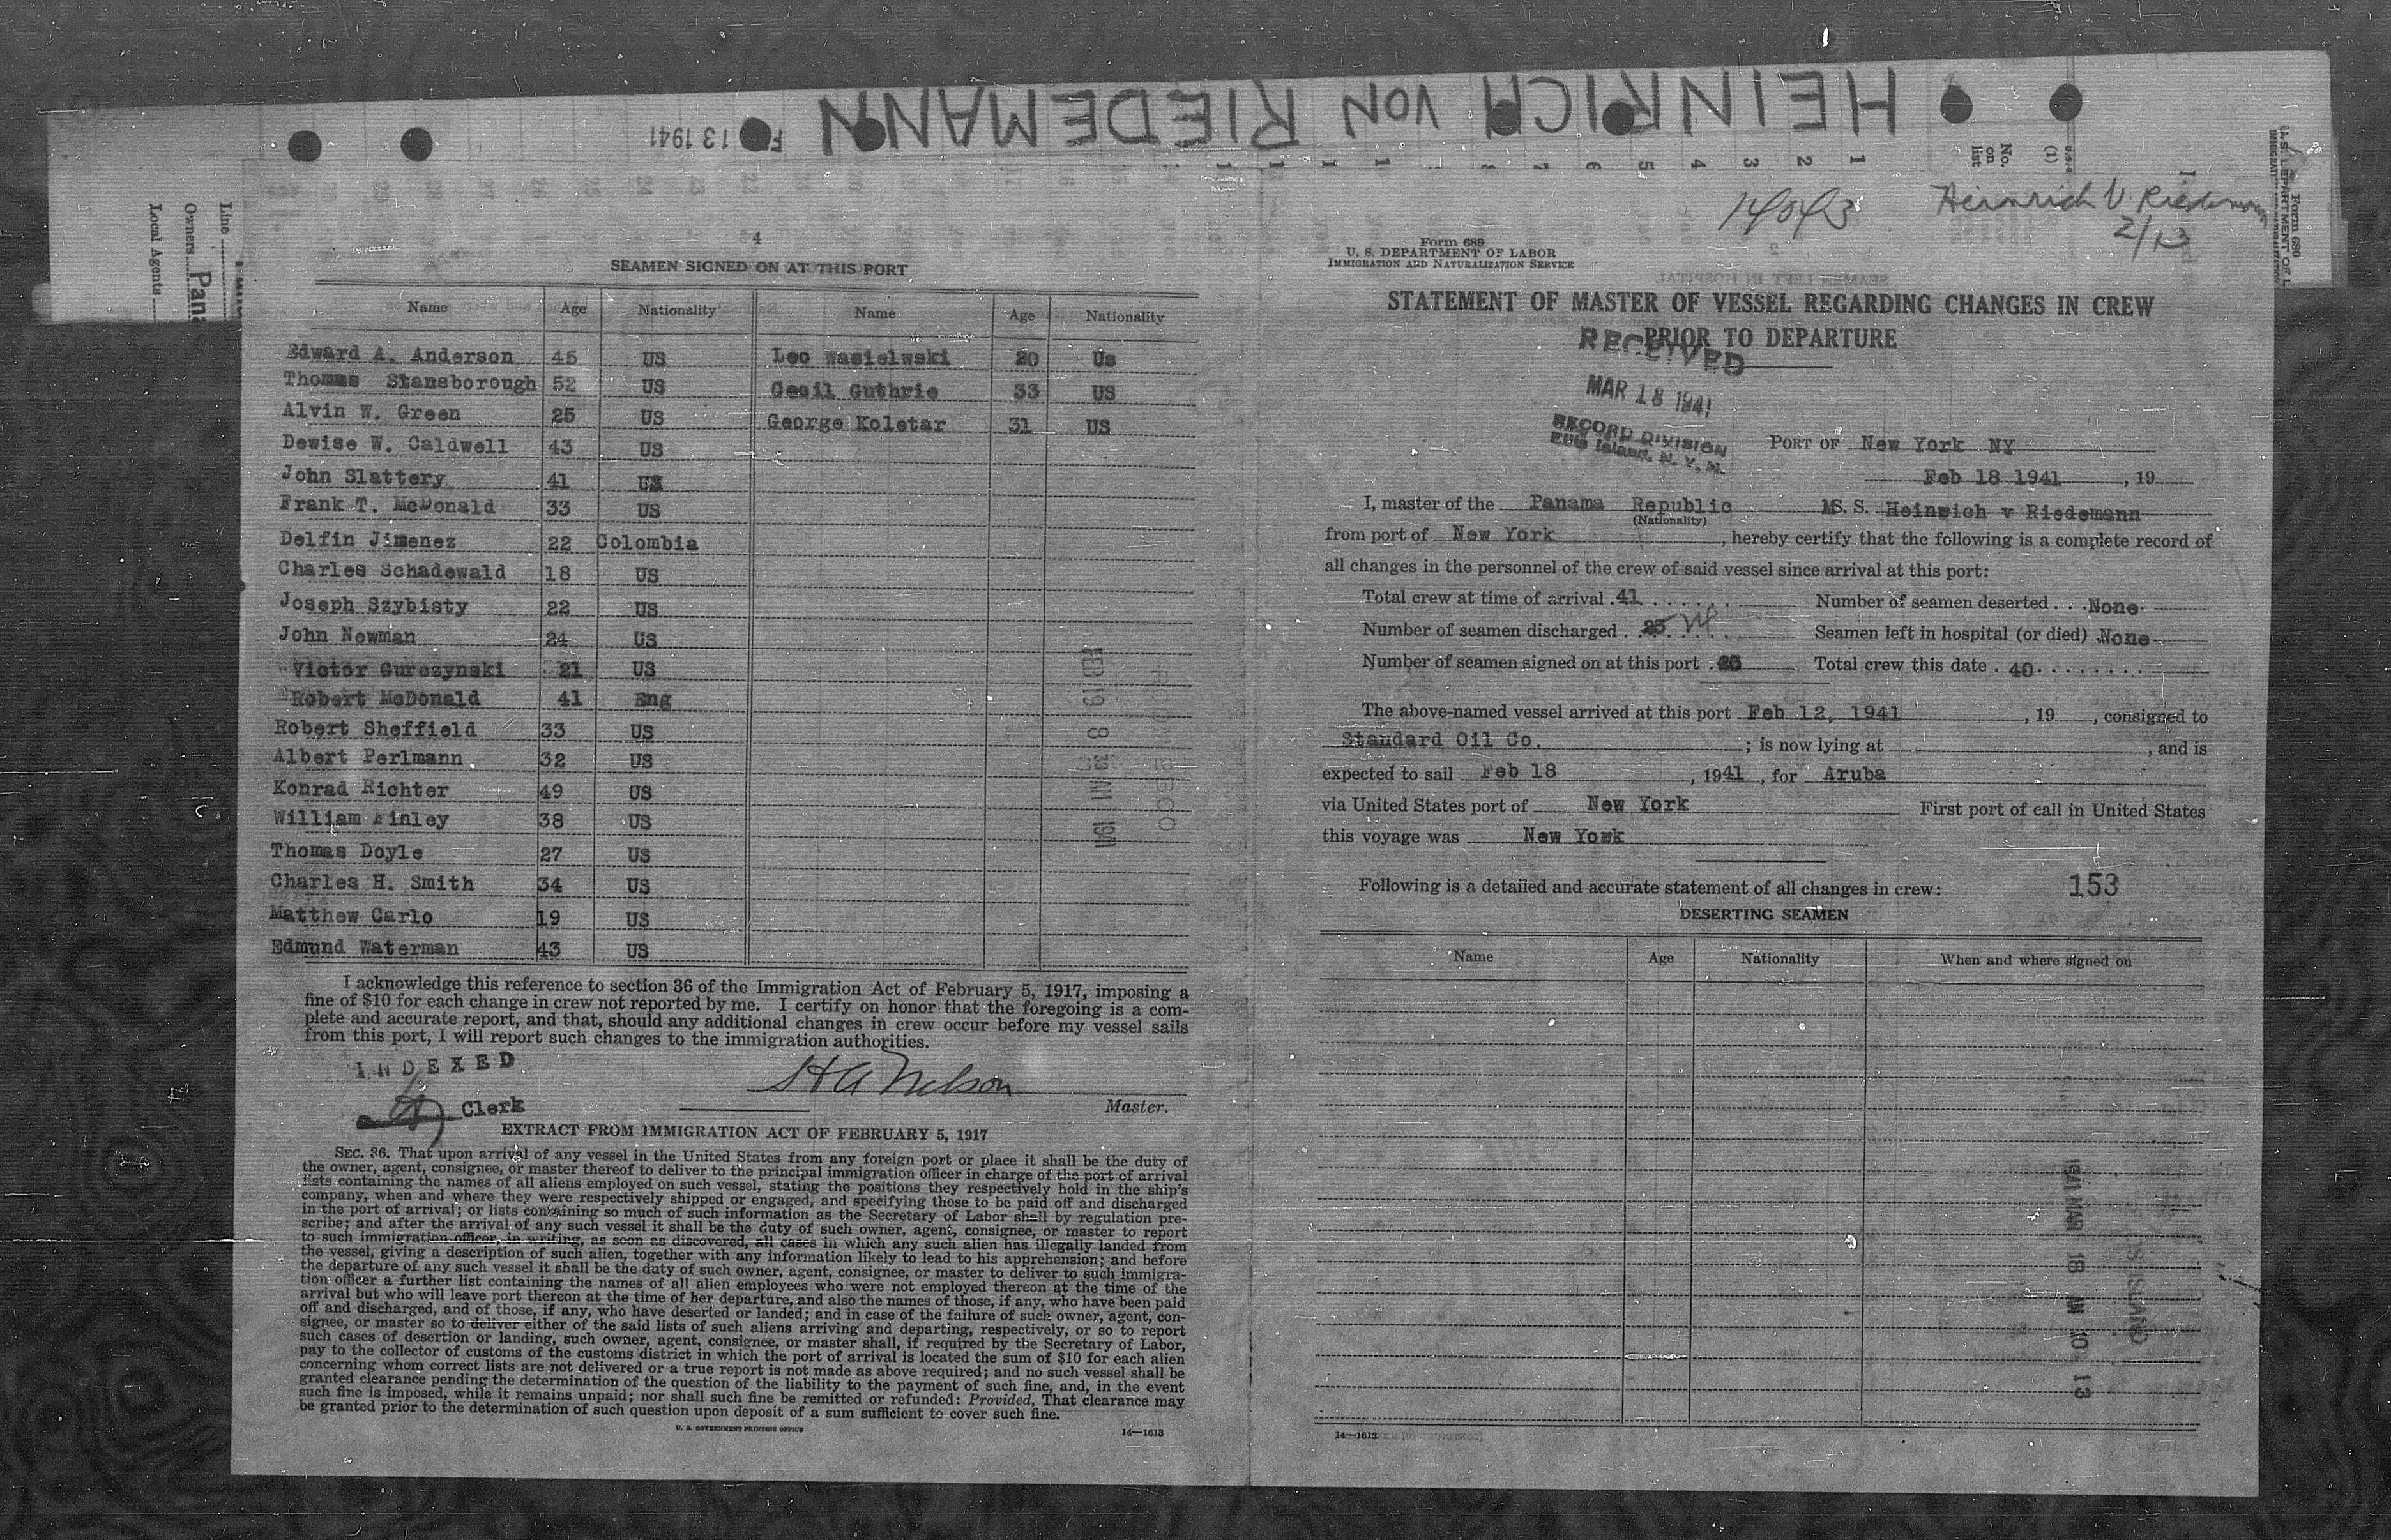 HEINRICH VON RIEDEMANN
13 1941
Line
Owners Pana
Local Agents
No. on list
(1)
1 2 3 4 5 6
Form 689
4
SEAMEN SIGNED ON AT THIS PORT
Name Age Nationality Name Age Nationality
Edward A. Anderson 45 US Leo Wasielwski 20 Us
Thomas Stansborough 52 US Cecil Guthrie 33 US
Alvin W. Green 25 US George Koletar 31 US
Dewise W. Caldwell 43 US
John Slattery 41 US
Frank T. McDonald 33 US
Delfin Jimenez 22 Colombia
Charles Schadewald 18 US
Joseph Szybisty 22 US
John Newman 24 US
Victor Gurczynski 21 US
Robert McDonald 41 Eng
Robert Sheffield 33 US
Albert Perlmann 32 US
Konrad Richter 49 US
William inley 38 US
Thomas Doyle 27 US
Charles H. Smith 34 US
Matthew Carlo 19 US
Edmund Waterman 43 US
FEB 19 8 39 AM 1941
I acknowledge this reference to section 36 of the Immigration Act of February 5, 1917, imposing a
fine of $10 for each change in crew not reported by me. I certify on honor that the foregoing is a com-
plete and accurate report, and that, should any additional changes in crew occur before my vessel sails
from this port, I will report such changes to the immigration authorities.
INDEXED
H A Nelson
Clerk
Master.
EXTRACT FROM IMMIGRATION ACT OF FEBRUARY 5, 1917
SEC. 36. That upon arrival of any vessel in the United States from any foreign port or place it shall be the duty of
the owner, agent, consignee, or master thereof to deliver to the principal immigration officer in charge of the port of arrival
lists containing the names of all aliens employed on such vessel, stating the positions they respectively hold in the ship's
company, when and where they were respectively shipped or engaged, and specifying those to be paid off and discharged
in the port of arrival; or lists containing so much of such information as the Secretary of Labor shall by regulation pre-
scribe; and after the arrival of any such vessel it shall be the duty of such owner, agent, consignee, or master to report
to such immigration officer, in writing, as soon as discovered, all cases in which any such alien has illegally landed from
the vessel, giving a description of such alien, together with any information likely to lead to his apprehension; and before
the departure of any such vessel it shall be the duty of such owner, agent, consignee, or master to deliver to such immigra-
tion officer a further list containing the names of all alien employees who were not employed thereon at the time of the
arrival but who will leave port thereon at the time of her departure, and also the names of those, if any, who have been paid
off and discharged, and of those, if any, who have deserted or landed; and in case of the failure of such owner, agent, con-
signee, or master so to deliver either of the said lists of such aliens arriving and departing, respectively, or so to report
such cases of desertion or landing, such owner, agent, consignee, or master shall, if required by the Secretary of Labor,
pay to the collector of customs of the customs district in which the port of arrival is located the sum of $10 for each alien
concerning whom correct lists are not delivered or a true report is not made as above required; and no such vessel shall be
granted clearance pending the determination of the question of the liability to the payment of such fine, and, in the event
such fine is imposed, while it remains unpaid; nor shall such fine be remitted or refunded: Provided, That clearance may
be granted prior to the determination of such question upon deposit of a sum sufficient to cover such fine.
U. S. GOVERNMENT PRINTING OFFICE 14—1613
Heinrich V. Riedemann
2/12
Form 689
U. S. DEPARTMENT OF LABOR
IMMIGRATION AND NATURALIZATION SERVICE
STATEMENT OF MASTER OF VESSEL REGARDING CHANGES IN CREW
PRIOR TO DEPARTURE
RECEIVED
MAR 18 1941
RECORD DIVISION
Ellis Island, N. Y. H.
PORT OF New York NY
Feb 18 1941, 19
I, master of the Panama Republic MS. S. Heinrich v Riedemann
(Nationality)
from port of New York, hereby certify that the following is a complete record of
all changes in the personnel of the crew of said vessel since arrival at this port:
Total crew at time of arrival 41 Number of seamen deserted None
Number of seamen discharged 25 24 Seamen left in hospital (or died) None
Number of seamen signed on at this port 23 Total crew this date 40
The above-named vessel arrived at this port Feb 12, 1941, 19, consigned to
Standard Oil Co.; is now lying at , and is
expected to sail Feb 18, 1941, for Aruba
via United States port of New York First port of call in United States
this voyage was New York
Following is a detailed and accurate statement of all changes in crew: 153
DESERTING SEAMEN
Name Age Nationality When and where signed on
1941 MAR 18 AM 10 13
14—1613